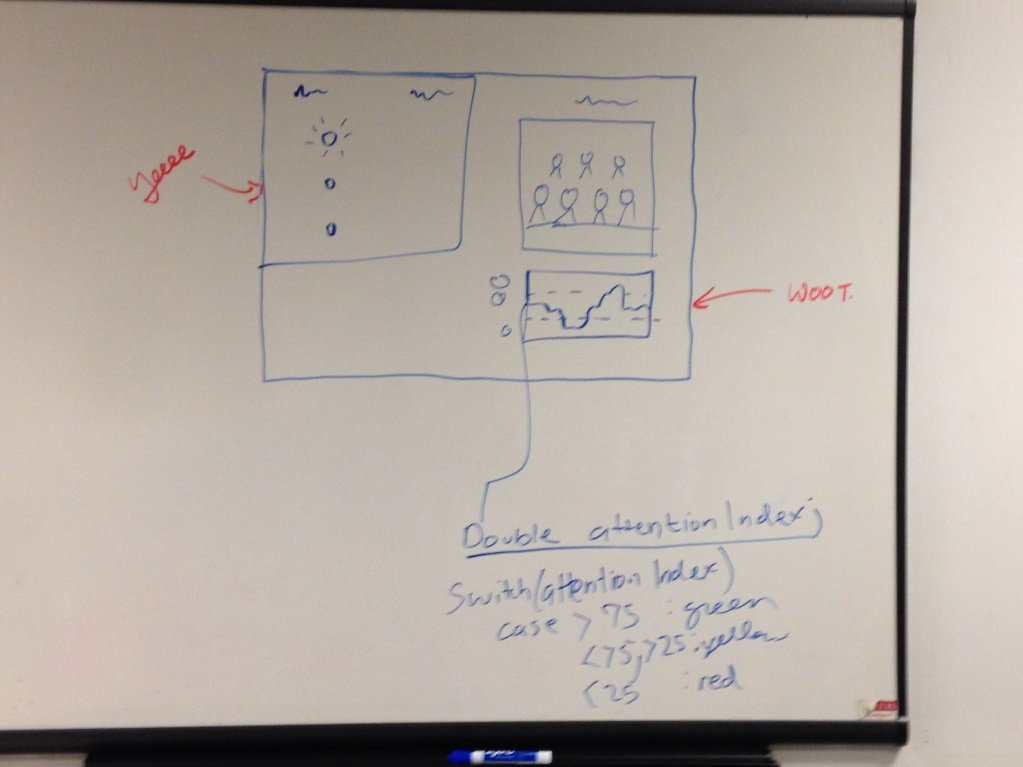 yeeee
WOOT.
Double attentionIndex;
Switch(attentionIndex)
case > 75 : green
<75,>25:yellow
<25 : red